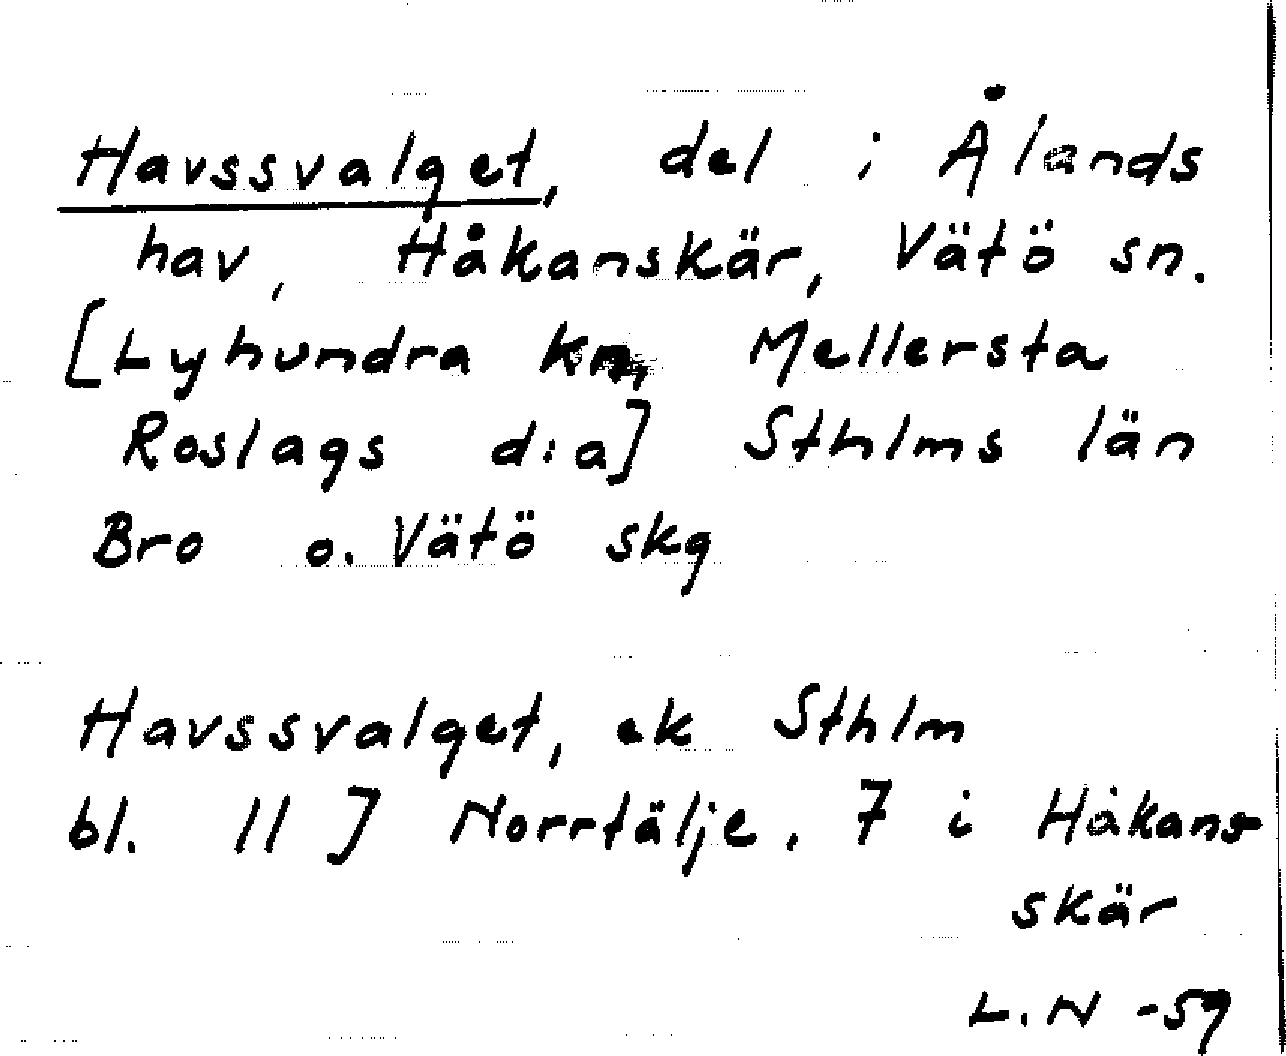 Havssvalget, del i Ålands
hav, Håkanskär, Vätö sn.
[Lyhundra km, Mellersta
Roslags d:a] Sthlms län
Bro o. Vätö skg
Havssvalget, ek Sthlm
bl. 11 J Norrtälje. 7 i Håkans
skär
L.N -59